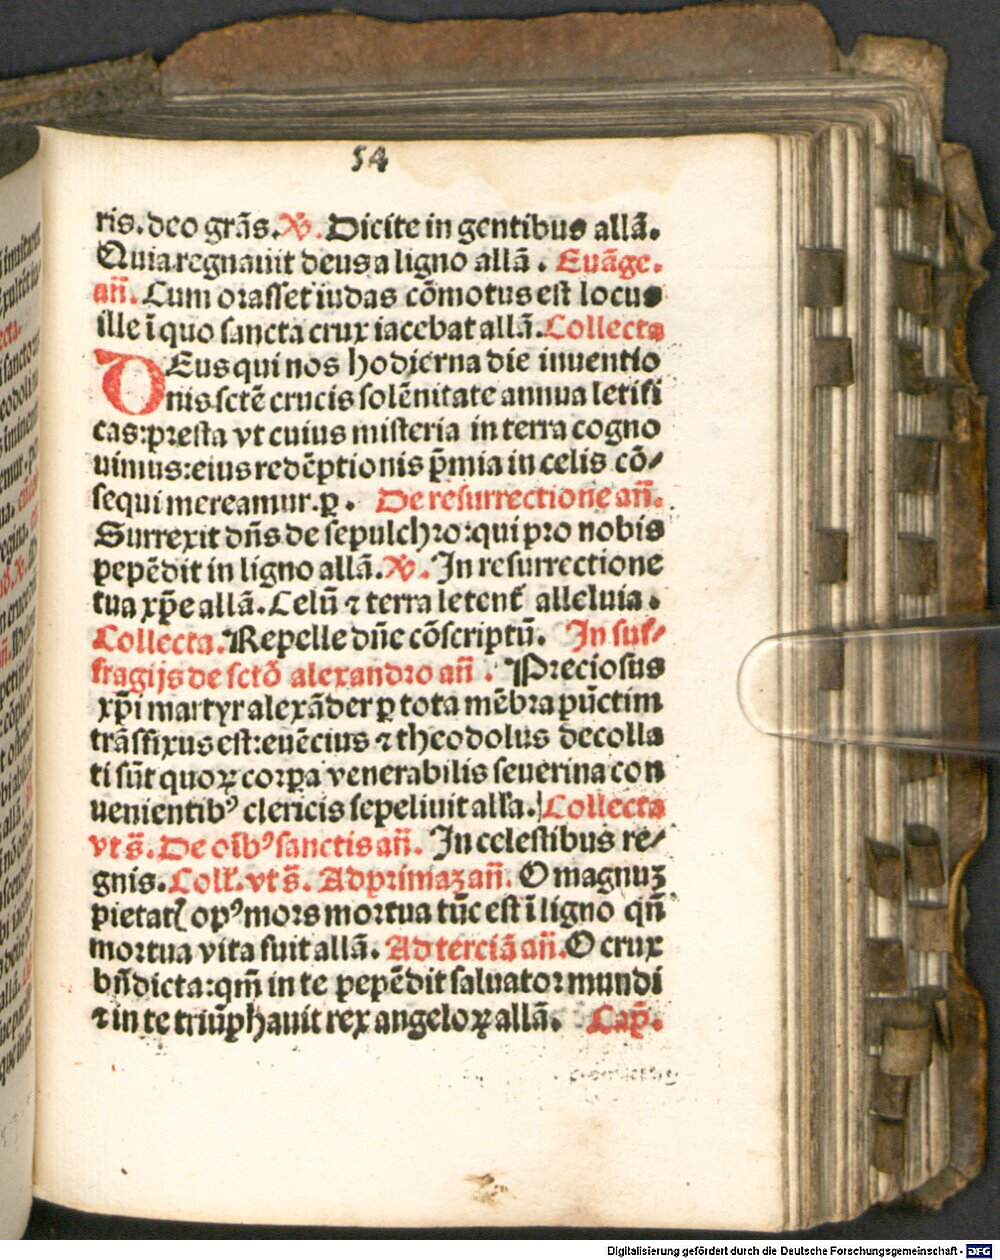 54
ris. deo grãs. ℣. Dicite in gentibus allã.
Quia regnauit deus a ligno allã. Euãge.
añ. Cum orasset iudas cõmotus est locus
ille ĩ quo sancta crux iacebat allã. Collecta
DEus qui nos hodierna die inuentio
nis sctẽ crucis solẽnitate annua letifi
cas: presta vt cuius misteria in terra cogno
uimus: eius redẽptionis p̃mia in celis cõ⸗
sequi mereamur. ꝑ. De resurrectione añ.
Surrexit dñs de sepulchro: qui pro nobis
pepẽdit in ligno allã. ℣. In resurrectione
tua xp̃e allã. Celũ ⁊ terra letent᷑ alleluia.
Collecta. Repelle dñe cõscriptũ. In suf⸗
fragijs de sctõ alexandro añ. Preciosus
xp̃i martyr alexãder ꝑ tota mẽbra pũctim
trãsfixus est: euẽcius ⁊ theodolus decolla
ti sũt quoꝝ corꝑa venerabilis seuerina con
uenientibꝰ clericis sepeliuit alľa. Collecta
vt s̃. De oĩbꝰ sanctis añ. In celestibus re⸗
gnis. Coll̃. vt s̃. Ad primaꝫ añ. O magnuꝫ
pietatꝭ opꝰ mors mortua tũc est ĩ ligno qñ
mortua vita fuit allã. Ad terciã añ. O crux
bñdicta: qm̃ in te pepẽdit saluator mundi
⁊ in te triũphauit rex angeloꝝ allã. Cap̃.
Digitalisierung gefördert durch die Deutsche Forschungsgemeinschaft - DFG